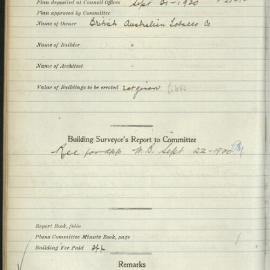 Plan deposited at Council Offices Sept 21-1920
Plan approved by Committee
Name of Owner British Australian Tobacco Co
Name of Builder "
Name of Architect
Value of Buildings to be erected not given
Building Surveyor's Report to Committee
Rec for app Sept 22-1920
Report Book, folio
Plans Committee Minute Book, page
Building Fee Paid
Remarks